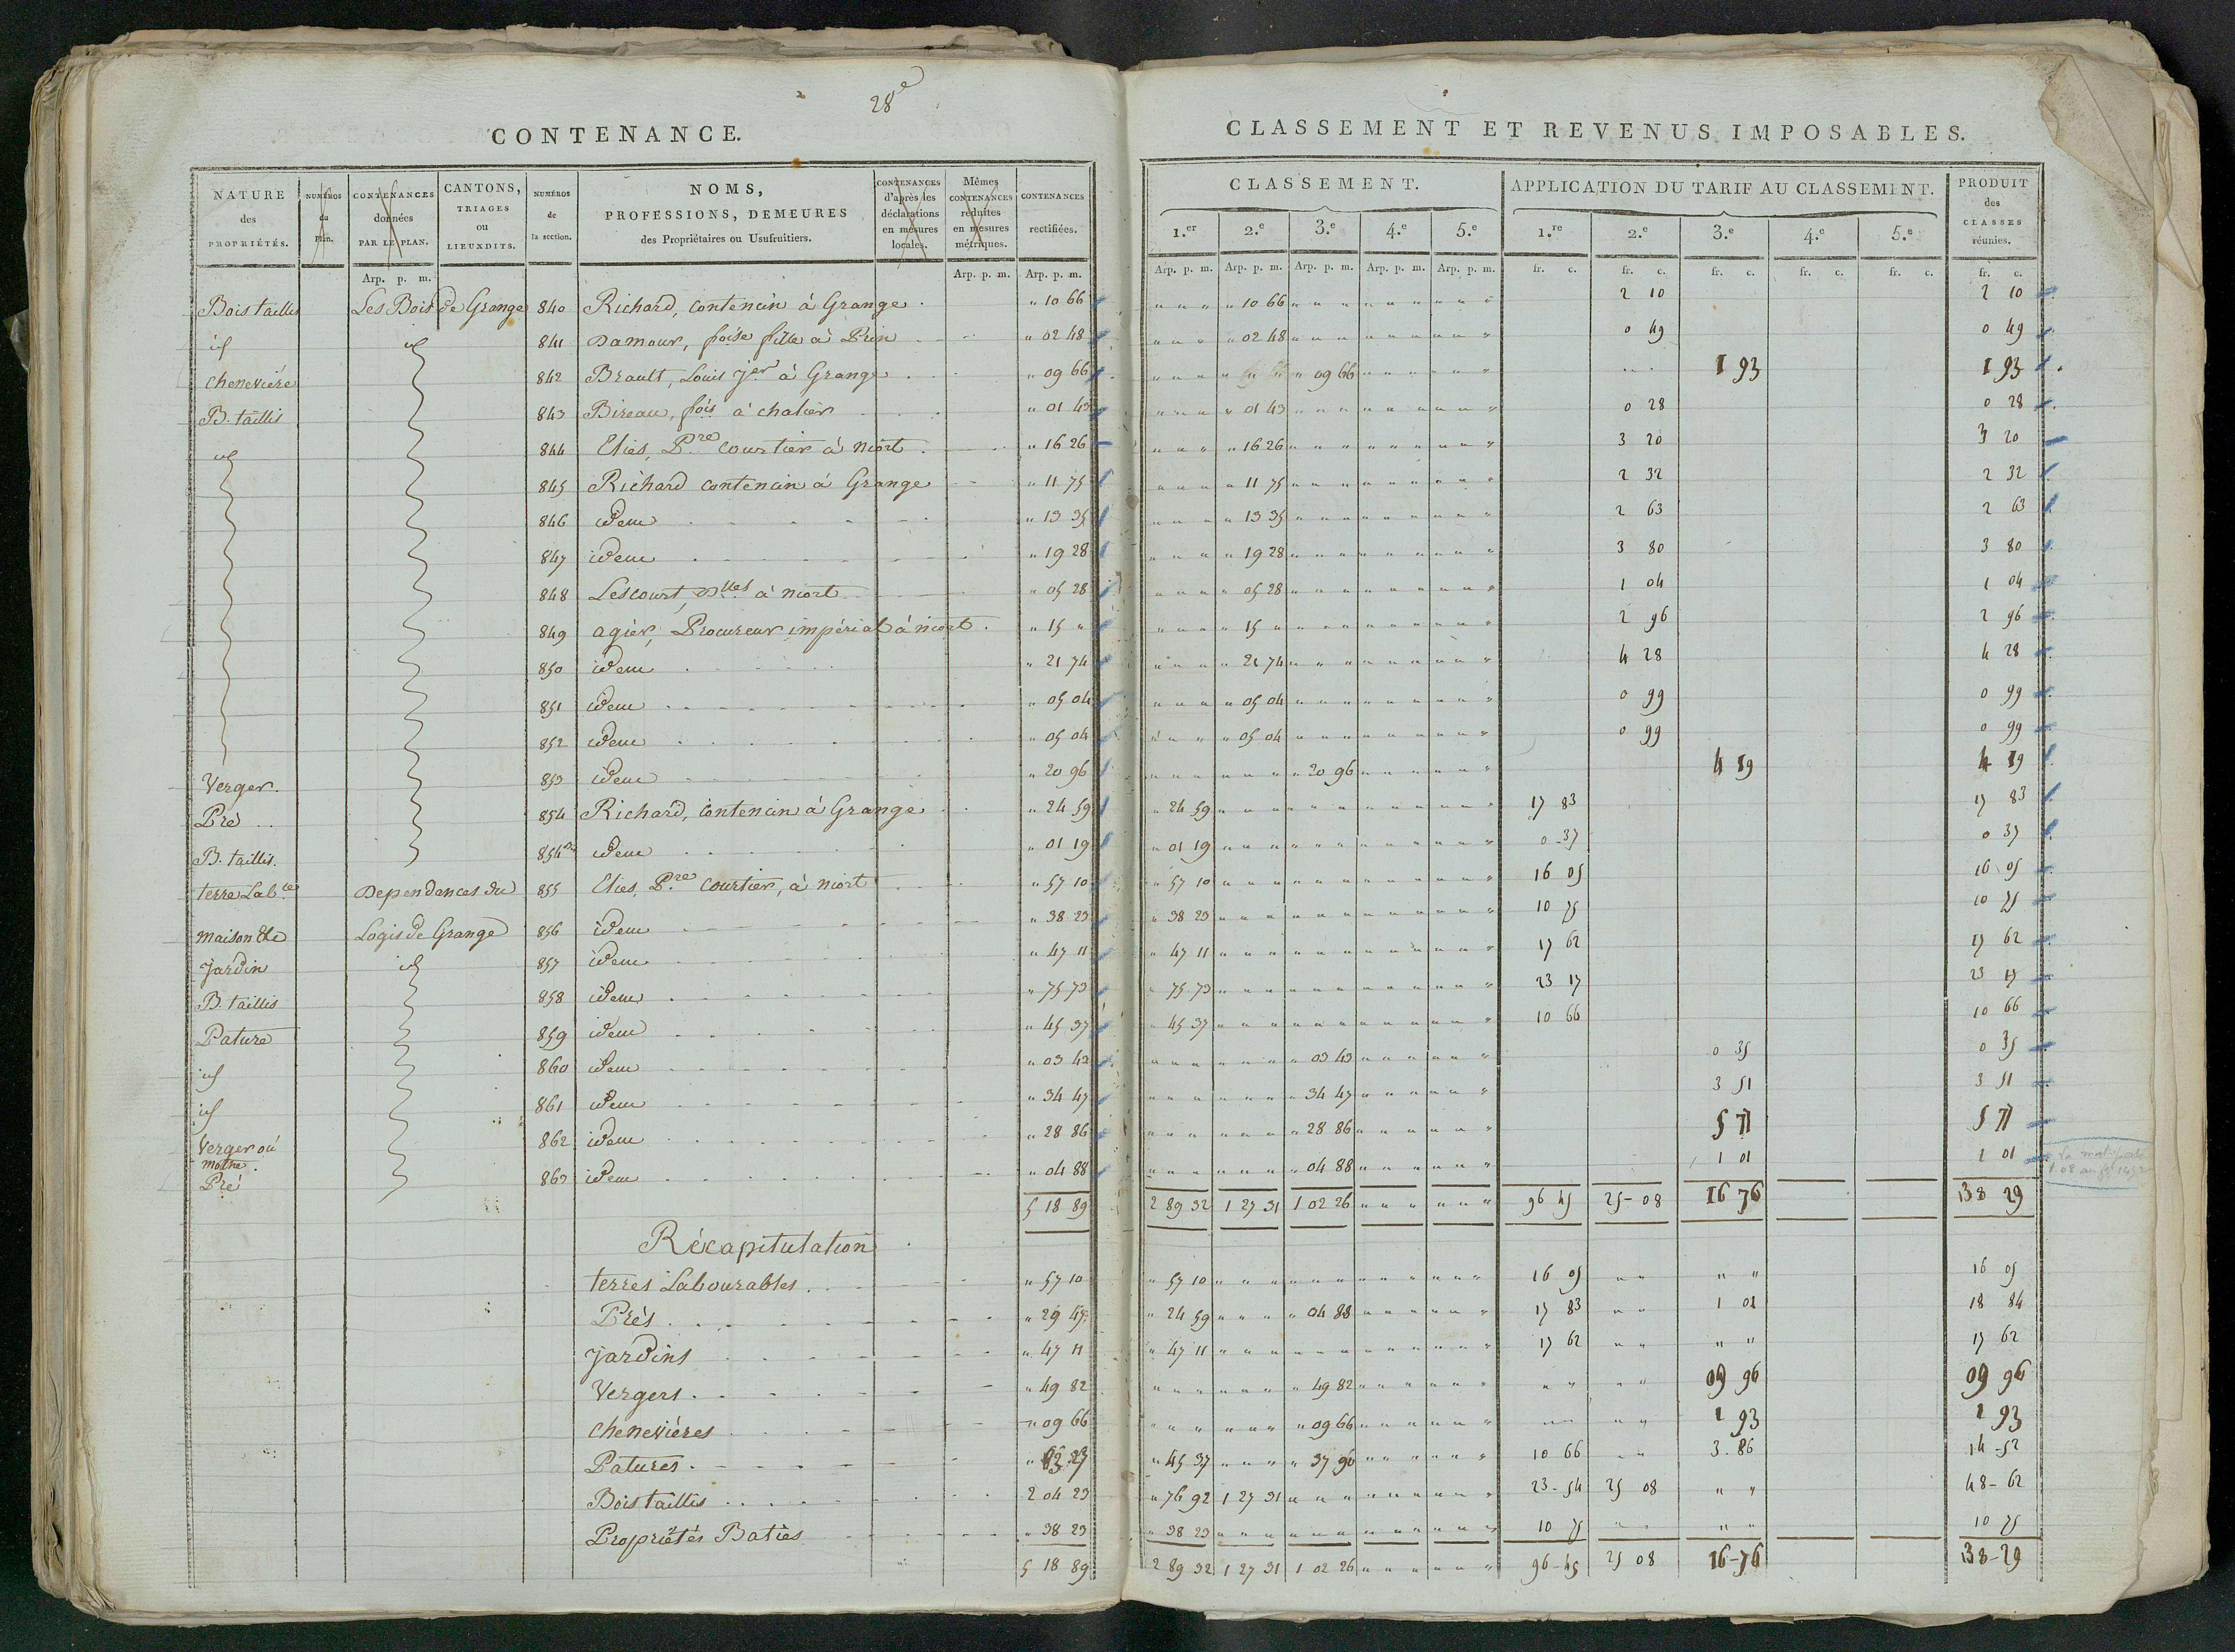 28e
CONTENANCE.
NATURE des PROPRIÉTÉS. | NUMÉROS du Plan. | CONTENANCES données PAR LE PLAN. | CANTONS, TRIAGES ou LIEUXDITS. | NUMÉROS de la section. | NOMS, PROFESSIONS, DEMEURES des Propriétaires ou Usufruitiers. | CONTENANCES d'après les déclarations en mesures locales. | Mêmes CONTENANCES réduites en mesures métriques. | CONTENANCES rectifiées.
Arp. p. m. | Arp. p. m. | Arp. p. m.
Bois taillis Les Bois de Grange 840 Richard, contencin à Grange " 10 66
id id 841 Damour, foise fille à Prin " 02 48
cheneviére 842 Brault, Louis Jer à Grange " 09 66
B. taillis 843 Bireau, fois à chalier " 01 43
id 844 Elies, Pre courtier à niort " 16 26
845 Richard contencin à Grange " 11 75
846 idem " 13 35
847 idem " 19 28
848 Lescourt, Dlles à niort " 05 28
849 agier, Procureur impérial à niort " 15 "
850 idem " 21 74
851 idem " 05 04
852 idem " 05 04
Verger. 853 idem " 20 96
Pré 854 Richard, contencin à Grange " 24 59
B. taillis. 854 bis idem " 01 19
terre Lable Dependances du 855 Elies, Pre courtier, à niort " 57 10
maison &c Logis de Grange 856 idem " 38 23
Jardin id 857 idem " 47 11
B. taillis 858 idem " 75 73
Pature 859 idem " 45 37
id 860 idem " 03 43
id 861 idem " 34 47
Verger ou mothe. 862 idem " 28 86
Pré 863 idem " 04 88
5 18 89
Récapitulation
terres Labourables " 57 10
Prés " 29 47
Jardins " 47 11
Vergers " 49 82
cheneviéres " 09 66
Patures " 83 27
Bois taillis 2 04 23
Propriétés Baties " 38 23
5 18 89
CLASSEMENT ET REVENUS IMPOSABLES.
CLASSEMENT. | APPLICATION DU TARIF AU CLASSEMENT. | PRODUIT des CLASSES réunies.
1.er | 2.e | 3.e | 4.e | 5.e | 1.re | 2.e | 3.e | 4.e | 5.e
Arp. p. m. | Arp. p. m. | Arp. p. m. | Arp. p. m. | Arp. p. m. | fr. c. | fr. c. | fr. c. | fr. c. | fr. c. | fr. c.
" 10 66 2 10 2 10
" 02 48 0 49 0 49
" 09 66 1 93 1 93
" 01 43 0 28 0 28
" 16 26 3 20 3 20
" 11 75 2 32 2 32
" 13 35 2 63 2 63
" 19 28 3 80 3 80
" 05 28 1 04 1 04
" 15 " 2 96 2 96
" 21 74 4 28 4 28
" 05 04 0 99 0 99
" 05 04 0 99 0 99
" 20 96 4 19 4 19
" 24 59 17 83 17 83
" 01 19 0 37 0 37
" 57 10 16 05 16 05
" 38 23 10 75 10 75
" 47 11 17 62 17 62
" 75 73 23 17 23 17
" 45 37 10 66 10 66
" 03 43 0 35 0 35
" 34 47 3 51 3 51
" 28 86 5 77 5 77
" 04 88 1 01 1 01
2 89 32 1 27 31 1 02 26 96 45 25-08 16 76 138 29
" 57 10 16 05 16 05
" 24 59 " 04 88 17 83 1 01 18 84
" 47 11 17 62 17 62
" 49 82 09 96 09 96
" 09 66 1 93 1 93
" 45 37 " 37 90 10 66 3.86 14-52
" 76 92 1 27 31 23-54 25 08 48-62
" 38 23 10 75 10 75
2 89 32 1 27 31 1 02 26 96-45 25 08 16-76 138-29